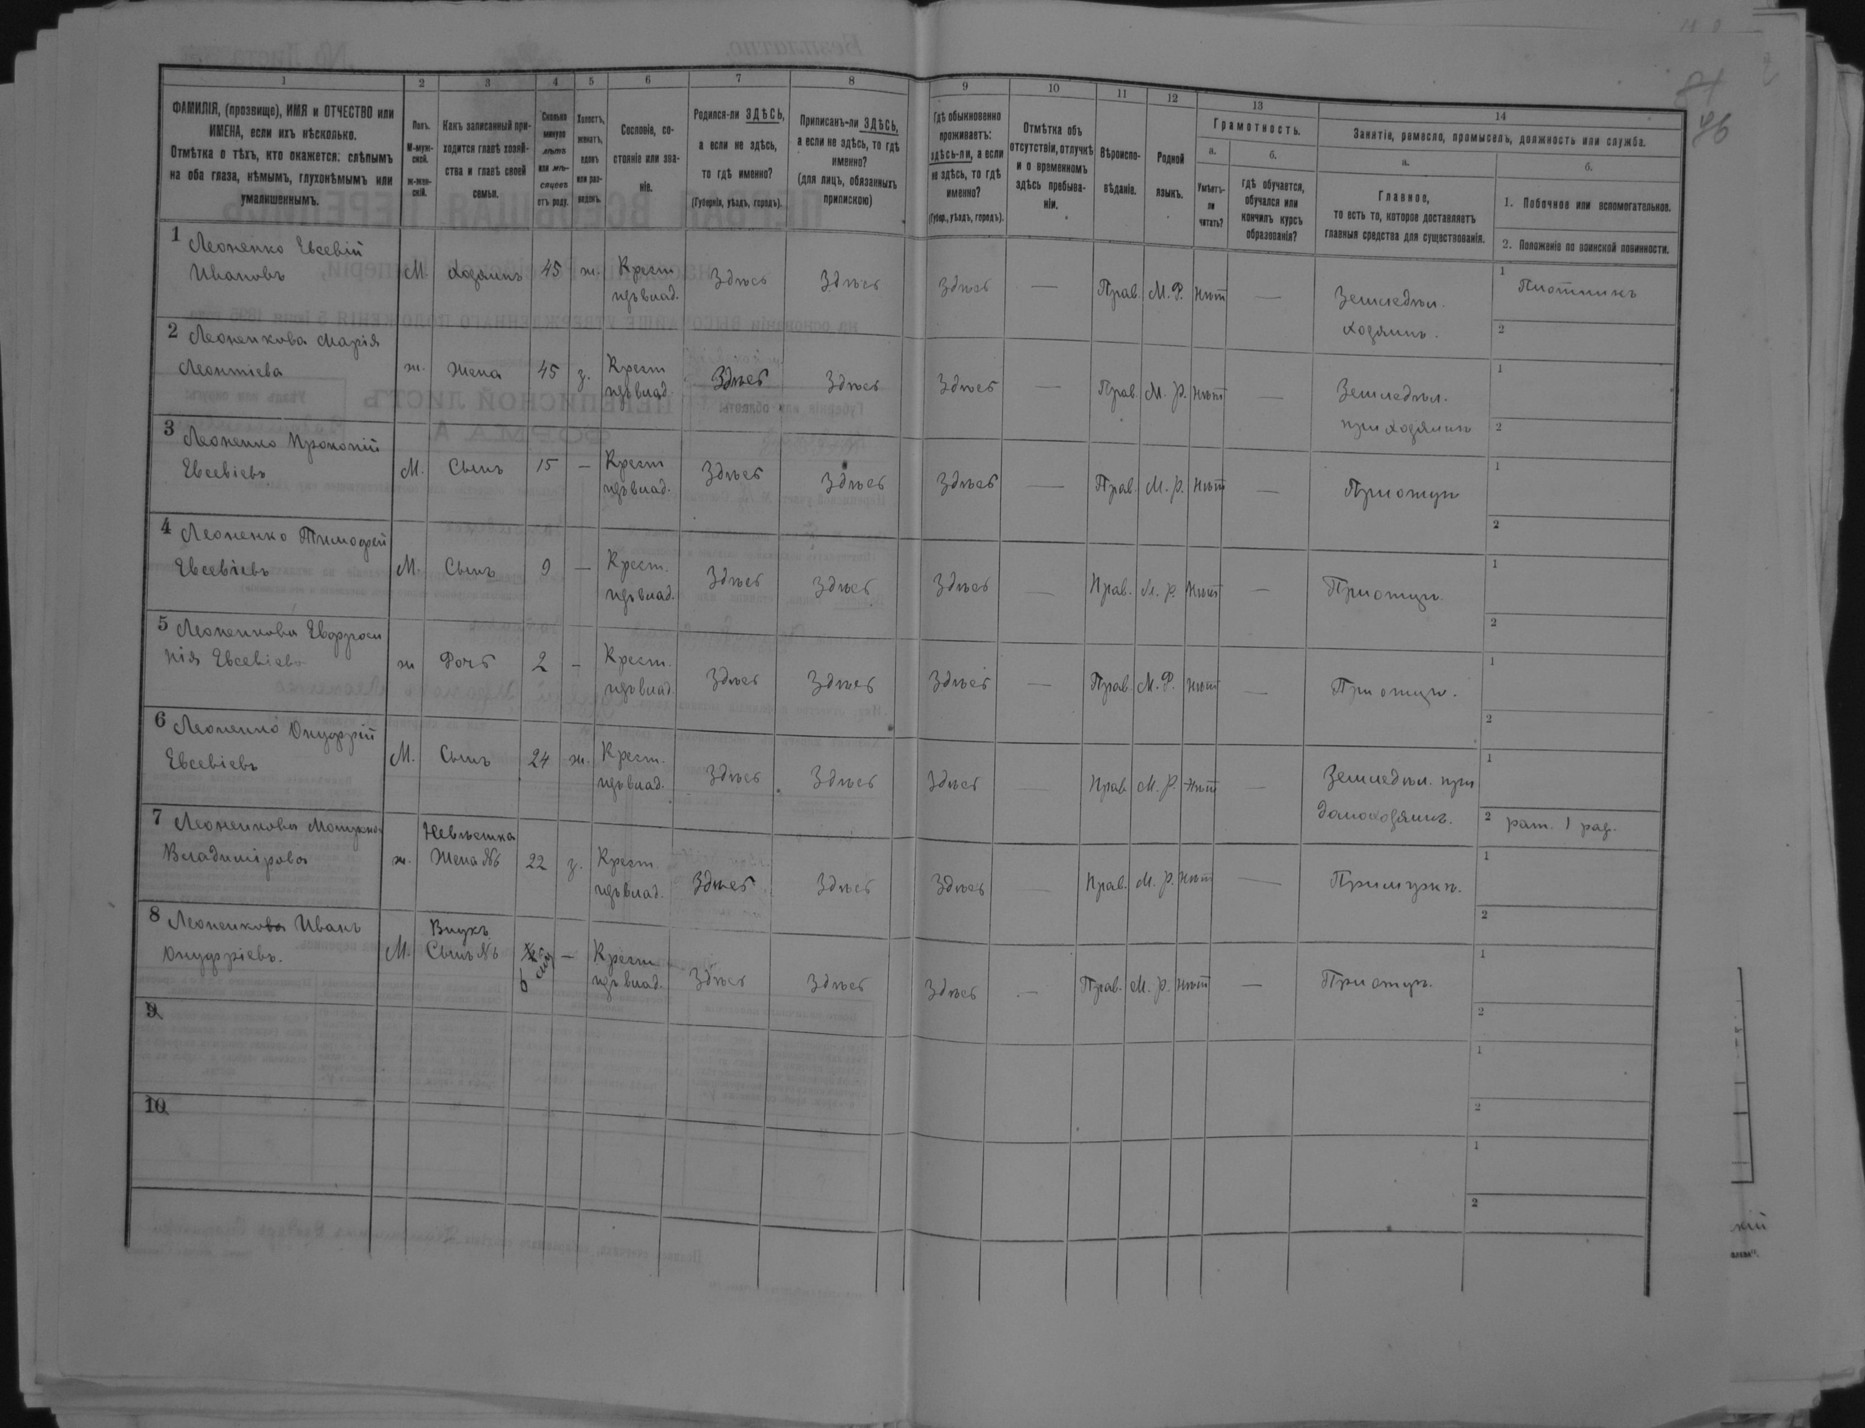 1 2 3 4 5 6 7 8 9 10 11 12 13 14
ФАМИЛІЯ, (прозвище), ИМЯ и ОТЧЕСТВО или
ИМЕНА, если ихъ нѣсколько.
Отмѣтка о тѣхъ, кто окажется: слѣпымъ
на оба глаза, нѣмымъ, глухонѣмымъ или
умалишеннымъ.
Полъ.
М-муж-
ской.
ж-жен-
скій.
Какъ записанный при-
ходится главѣ хозяй-
ства и главѣ своей
семьи.
Сколько
минуло
лѣтъ
или мѣ-
сяцевъ
отъ роду.
Холостъ,
женатъ,
вдовъ
или раз-
веденъ.
Сословіе, со-
стояніе или зва-
ніе.
Родился-ли ЗДѢСЬ,
а если не здѣсь,
то гдѣ именно?
(Губернія, уѣздъ, городъ).
Приписанъ-ли ЗДѢСЬ,
а если не здѣсь, то гдѣ
именно?
(для лицъ, обязанныхъ
припискою)
Гдѣ обыкновенно
проживаетъ:
здѣсь-ли, а если
не здѣсь, то гдѣ
именно?
(Губер., уѣздъ, городъ).
Отмѣтка объ
отсутствіи, отлучкѣ
и о временномъ
здѣсь пребыва-
ніи.
Вѣроиспо-
вѣданіе.
Родной
языкъ.
Грамотность.
а.
Умѣетъ-
ли
читать?
б.
гдѣ обучается,
обучался или
кончилъ курсъ
образованія?
Занятіе, ремесло, промыселъ, должность или служба.
а.
Главное,
то есть то, которое доставляетъ
главныя средства для существованія.
б.
1. Побочное или вспомогательное.
2. Положеніе по воинской повинности.
1 Леоненко Евсевій
Ивановъ
М. Хозяинъ 45 ж. Крест.
Здѣсь Здѣсь Здѣсь — Прав. М. Р. Нѣт —
Земледѣл.
хозяинъ.
1 Плотникъ
2
2 Леоненкова Марія
Леонтіева
ж. Жена 45 з. Крест
Здѣсь Здѣсь Здѣсь — Прав. М. Р. Нѣт —
Земледѣл.
при хозяинѣ
1
2
3 Леоненко Прокопій
Евсевіевъ
М. Сынъ 15 — Крест
Здѣсь Здѣсь Здѣсь — Прав. М. Р. Нѣт —
При отцѣ
1
2
4 Леоненко Тимофей
Евсевіевъ
М. Сынъ 9 — Крест.
Здѣсь Здѣсь Здѣсь — Прав. М. Р. Нѣт —
При отцѣ
1
2
5 Леоненкова Евфроси
нія Евсевіев
ж Дочь 2 — Крест.
Здѣсь Здѣсь Здѣсь — Прав. М. Р. Нѣт —
При отцѣ.
1
2
6 Леоненко Онуфрій
Евсевіевъ
М. Сынъ 24 ж. Крест.
Здѣсь Здѣсь Здѣсь — Прав М. Р. Нѣт —
Земледѣл. при
домохозяинѣ.
1
2 рат. 1 раз.
7 Леоненкова
Владимірова
ж. Невѣстка
Жена №6 22 з. Крест
Здѣсь Здѣсь Здѣсь — Прав. М. Р. Нѣт —
При мужѣ.
1
2
8 Леоненкова Иванъ
Онуфріевъ.
М. Внукъ
Сынъ №6 6 — Крест
Здѣсь Здѣсь Здѣсь — Прав. М. Р. Нѣт —
При отцѣ.
1
2
9
1
2
10
1
2